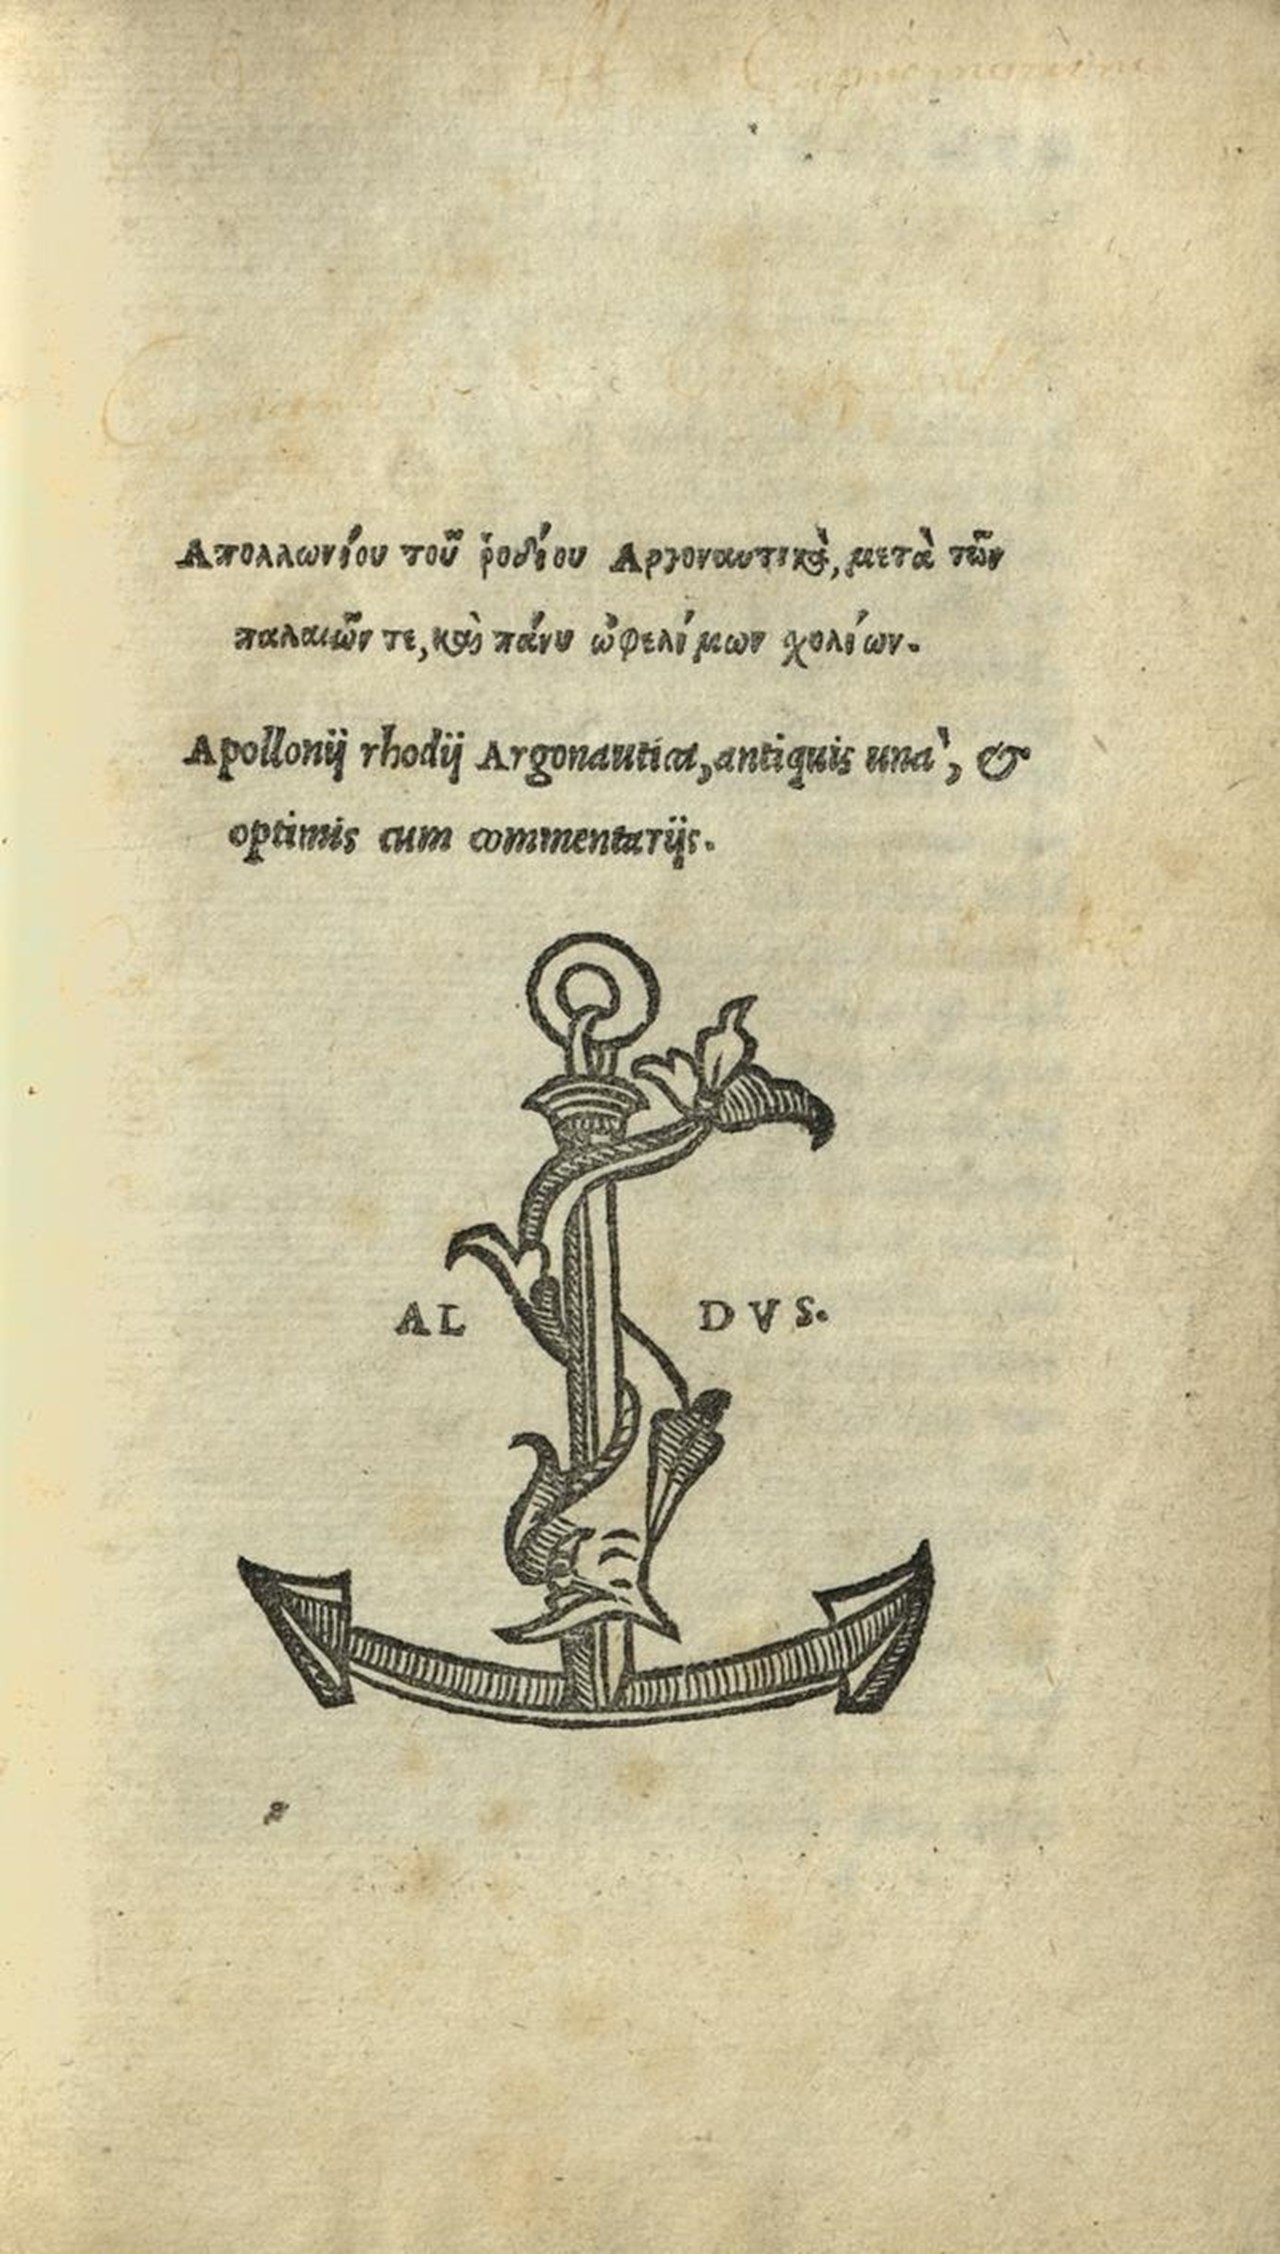 Απολλωνίου τοῦ ῥοδίου Αργοναυτικὰ, μετὰ τῶν
παλαιῶν τε, καὶ πάνυ ὠφελίμων χολίων.
Apollonij rhodij Argonautica, antiquis unà, &
optimis cum commentarijs.
AL DVS.